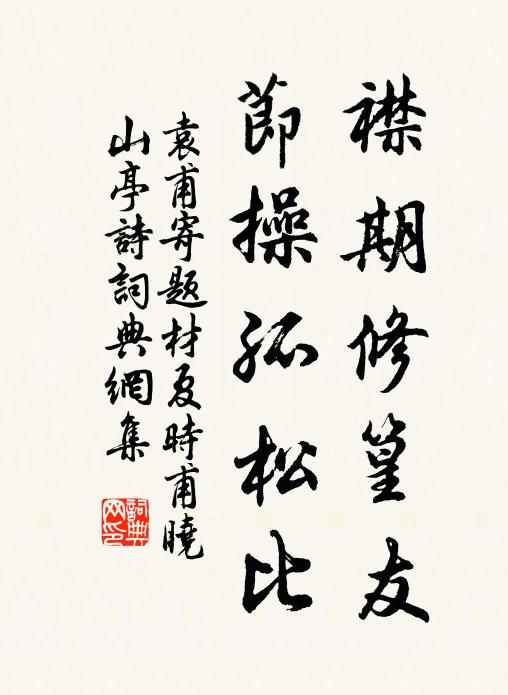 襟期修篁友
節操孤松比
袁甫寄题材夏時甫曉
山亭詩詞典網集
詞典网印